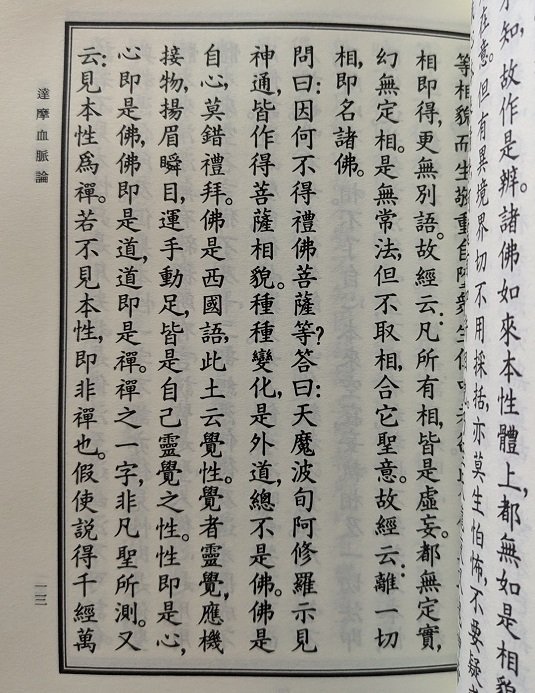 知，故作是辨。諸佛如來本性體上，都無如是相貌
在意。但有異境界切不用採括，亦莫生怕怖，不要疑
等相貌而生敬重自
相即得，更無別語。故經云：凡所有相，皆是虛妄。都無定實，
幻無定相。是無常法，但不取相，合它聖意。故經云：離一切
相，即名諸佛。
問曰：因何不得禮佛菩薩等？答曰：天魔波旬阿修羅示見
神通，皆作得菩薩相貌。種種變化，是外道，總不是佛。佛是
自心，莫錯禮拜。佛是西國語，此土云覺性。覺者靈覺，應機
接物，揚眉瞬目，運手動足，皆是自己靈覺之性。性即是心，
心即是佛，佛即是道，道即是禪。禪之一字，非凡聖所測。又
云：見本性爲禪。若不見本性，即非禪也。假使說得千經萬
達摩血脈論
一三